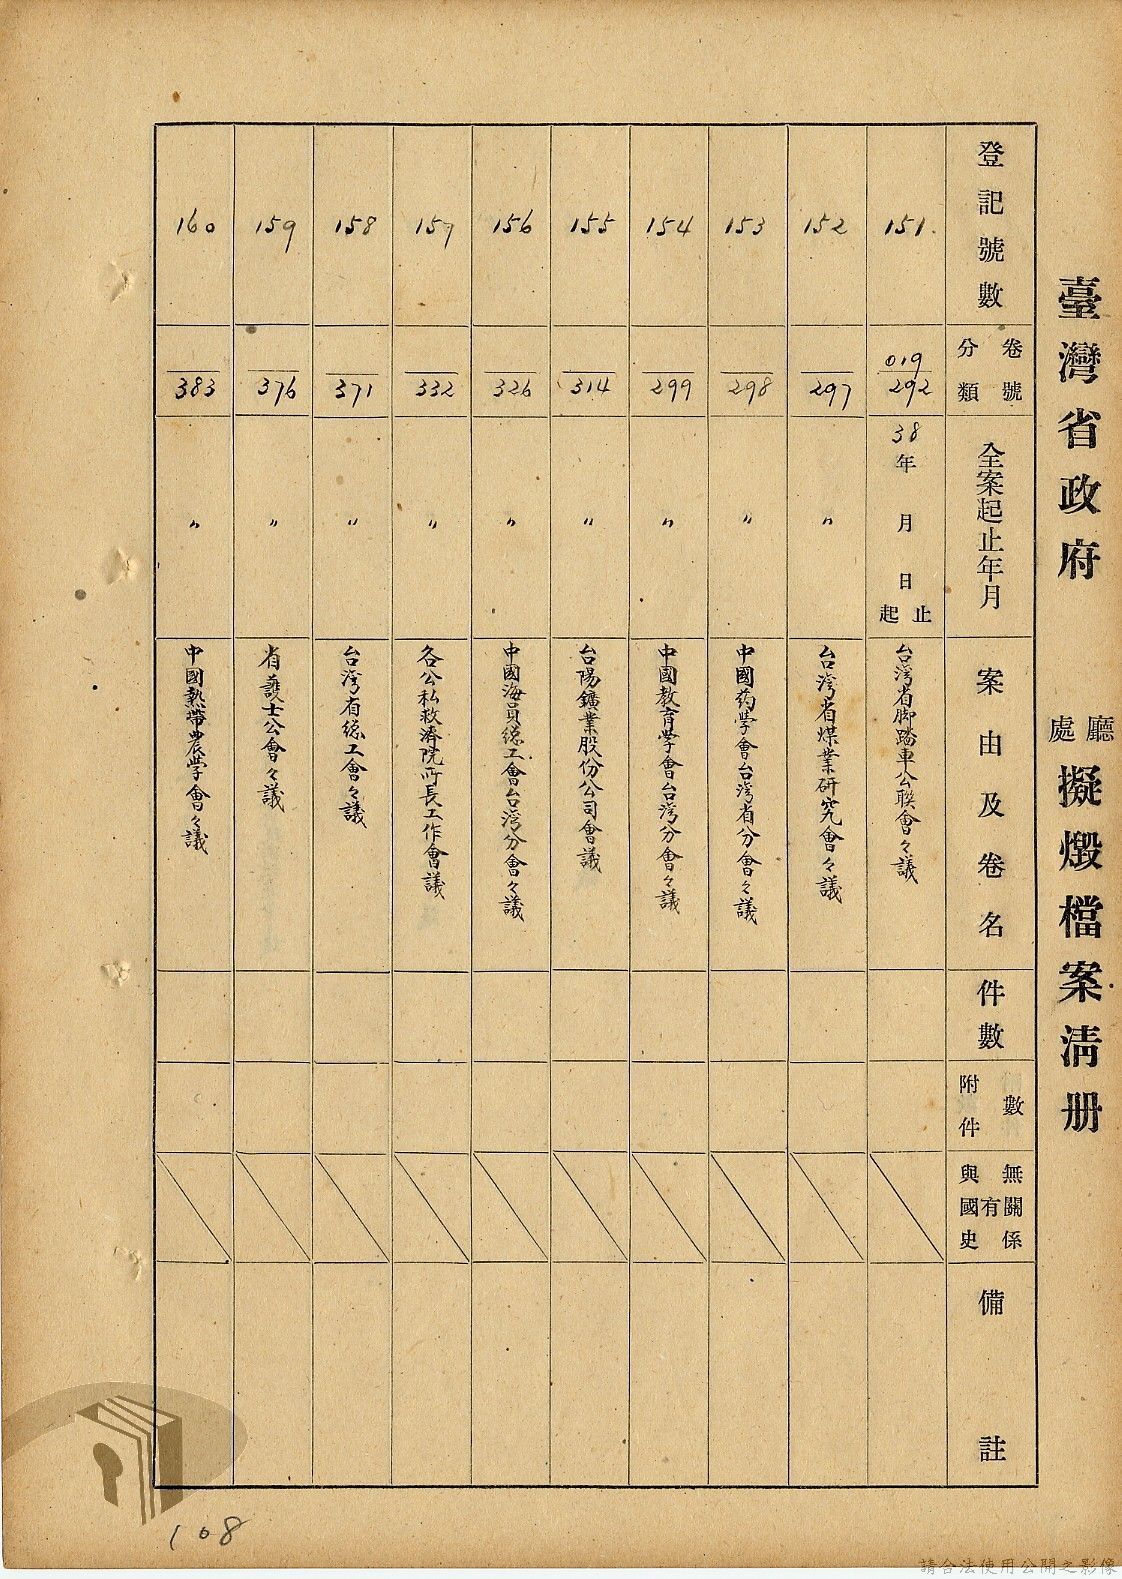 臺灣省政府
廳處
擬燬檔案清册
登記號數
卷號
分類
全案起止年月
案由及卷名
件數
附件數
與國史有無關係
備註
151.
019
292
38年 月 日 止起
台湾省脚踏車公联會々議
152
297
〃
台湾省煤業研究會々議
153
298
〃
中國药學會台湾省分會々議
154
299
〃
中國教育學會台湾分會々議
155
314
〃
台陽鑛業股份公司會議
156
326
〃
中國海員總工會台湾分會々議
157
332
〃
各公私救濟院所長工作會議
158
371
〃
台湾省總工會々議
159
376
〃
省護士公會々議
160
383
〃
中國熱帶農學會々議
108
請合法使用公開之影像